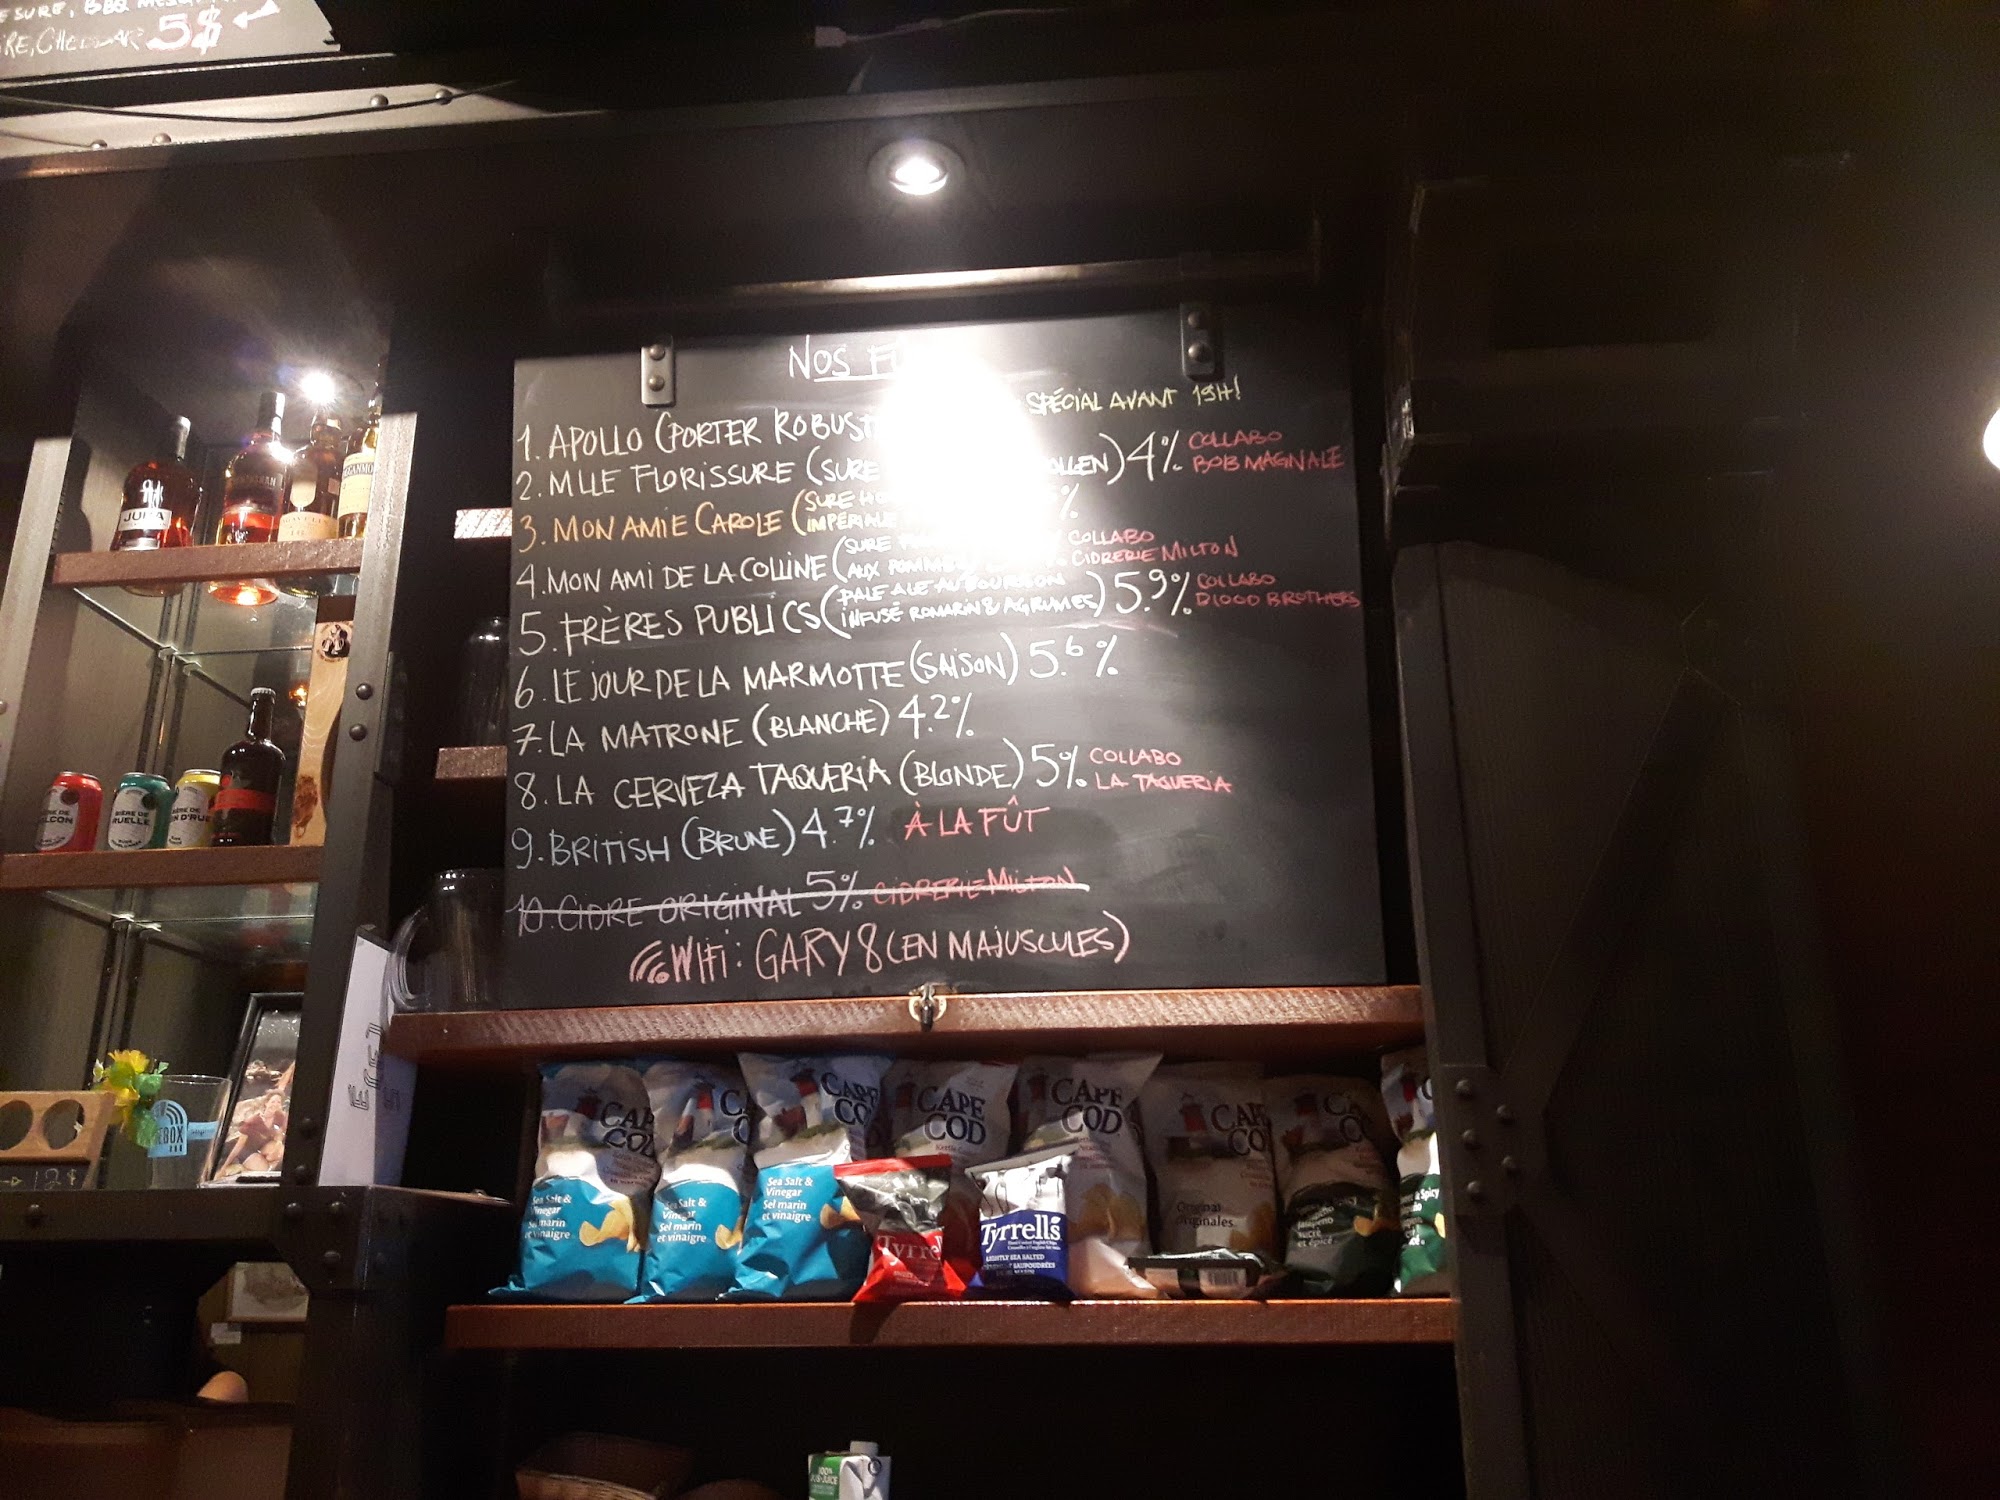 5$
NOS
1. APOLLO (PORTER SPÉCIAL AVANT 19H!
2. MLLE FLORISSURE (SURE 4% COLLABO BOB MAGNALE
3. MON AMIE CAROLE (SURE IMPÉRIALE %
4. MON AMI DE LA COLLINE (SURE AUX POMMES COLLABO CIDRERIE MILTON
5. FRÈRES PUBLICS (PALE ALE AU BOURBON INFUSÉ ROMARIN & AGRUMES) 5.9% COLLABO BROTHERS
6. LE JOUR DE LA MARMOTTE (SAISON) 5.6%
7. LA MATRONE (BLANCHE) 4.2%
8. LA CERVEZA TAQUERIA (BLONDE) 5% COLLABO LA TAQUERIA
9. BRITISH (BRUNE) 4.7% À LA FÛT
10. CIDRE ORIGINAL 5% CIDRERIE MILTON
WIFI: GARY8 (EN MAJUSCULES)
JURA
BIÈRE DE
RUELLE
12$
CAPE COD
CAPE COD
Sea Salt &
Vinegar
Sel marin
et vinaigre
Sea Salt &
Vinegar
Sel marin
et vinaigre
Sea Salt &
Vinegar
Sel marin
et vinaigre
Tyrrells
LIGHTLY SEA SALTED
Original
Originales
Jalapeño
sucré
et épicé
100%